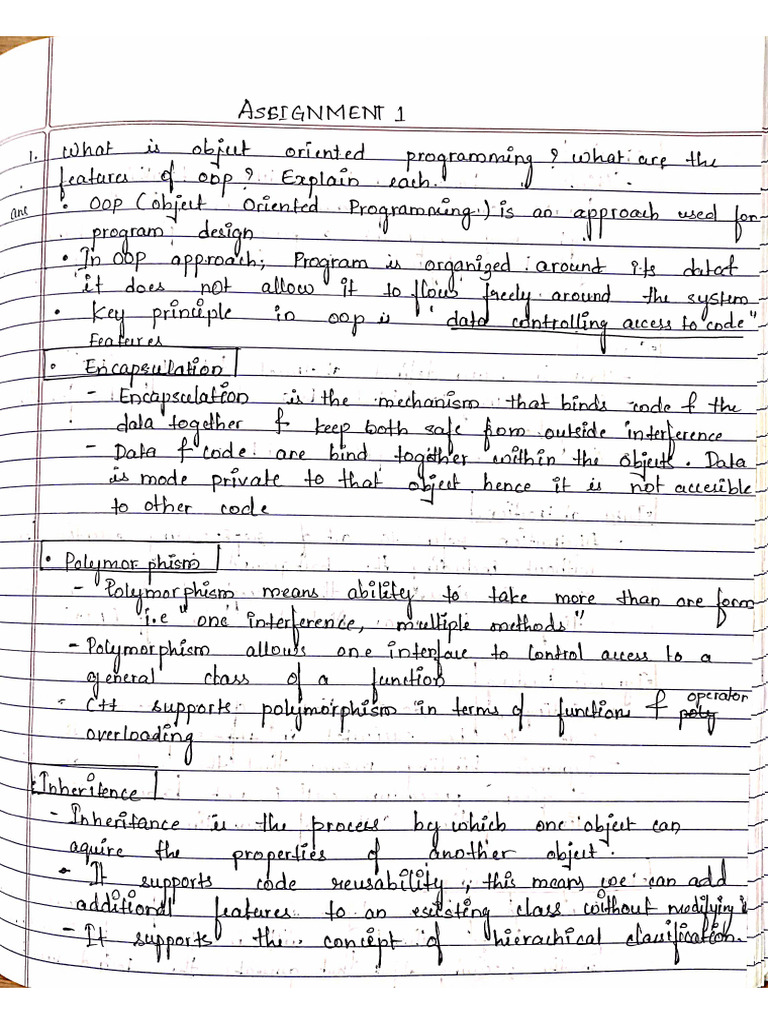 ASSIGNMENT 1
1. What is object oriented programming? What are the
features of OOP? Explain each.
ans • OOP (object oriented Programming) is an approach used for
program design
• In OOP approach, Program is organized around its data &
it does not allow it to flow freely around the system
• Key principle in OOP is "data controlling access to code"
Features
• Encapsulation
- Encapsulation is the mechanism that binds code & the
data together & keep both safe from outside interference
- Data & code are bind together within the object. Data
is mode private to that object hence it is not accesible
to other code
• Polymorphism
- Polymorphism means ability to take more than one form
i.e "one interference, multiple methods"
- Polymorphism allows one interface to control access to a
general class of a function
- C++ supports polymorphism in terms of function & poly operator
overloading
• Inheritence
- Inheritance is the process by which one object can
aquire the properties of another object.
- It supports code reusability, this means we can add
additional features to an existing class without modifying it
- It supports the concept of hierachical classification.